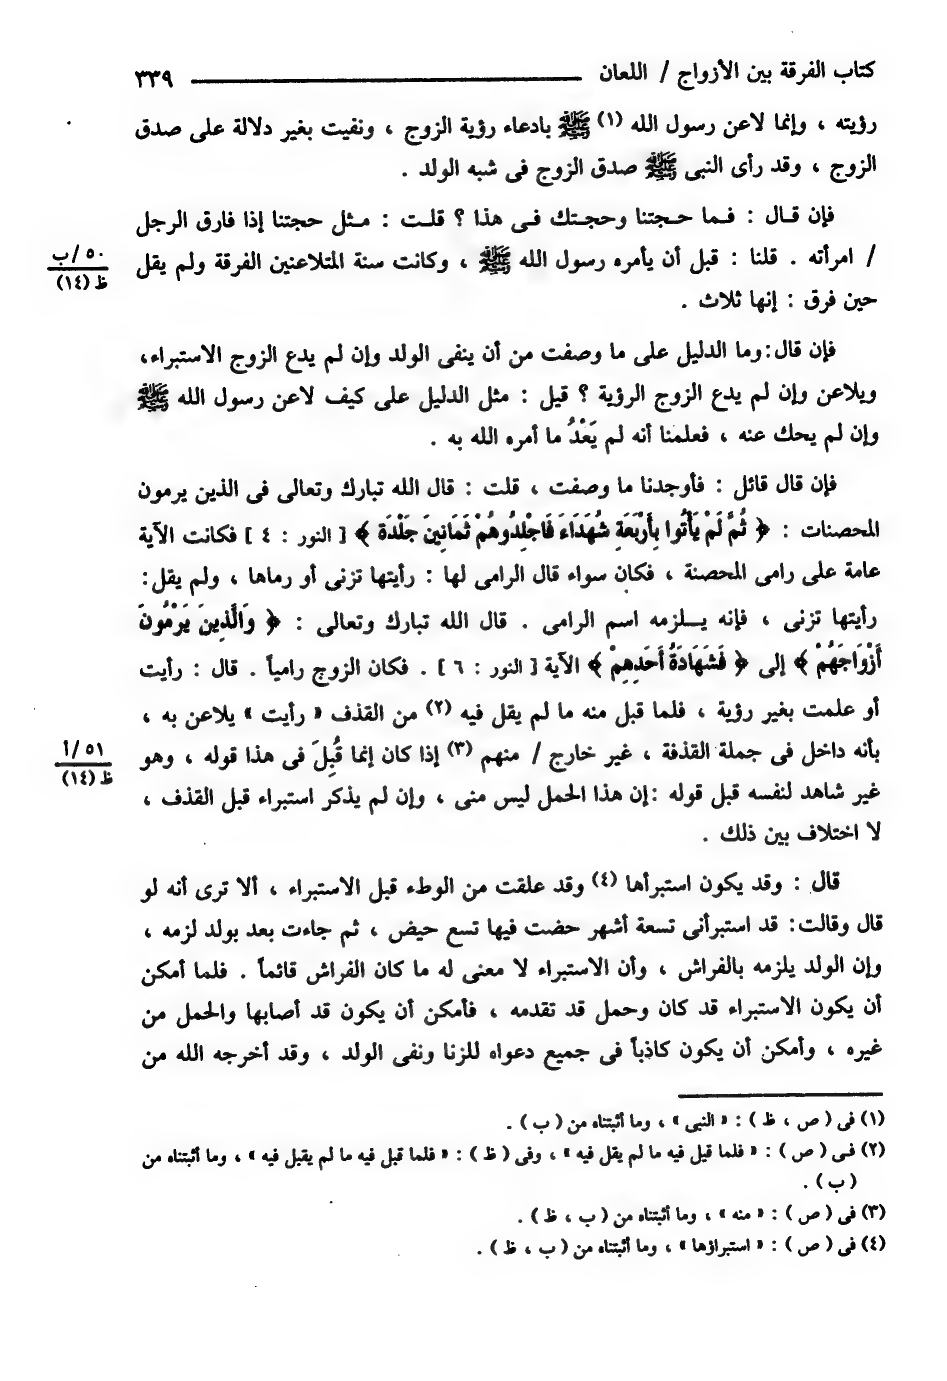 كتاب الفرقة بين الأزواج / اللعان ٣٣٩
رؤيته ، وإنما لاعن رسول الله (١) ﷺ بادعاء رؤية الزوج ، ونفيت بغير دلالة على صدق
الزوج ، وقد رأى النبى ﷺ صدق الزوج فى شبه الولد .
فإن قـال : فـما حـجتنا وحجـتك فـى هذا ؟ قلـت : مـثل حجتنا إذا فارق الرجل
/ امرأته . قلنا : قبل أن يأمره رسول الله ﷺ ، وكانت سنة المتلاعنين الفرقة ولم يقل
٥٠ /ب
ظ (١٤)
حين فرق : إنها ثلاث .
فإن قال:وما الدليل على ما وصفت من أن ينفى الولد وإن لم يدع الزوج الاستبراء،
ويلاعن وإن لم يدع الزوج الرؤية ؟ قيل : مثل الدليل على كيف لاعن رسول الله ﷺ
وإن لم يحك عنه ، فعلمنا أنه لم يَعْدُ ما أمره الله به .
فإن قال قائل : فأوجدنا ما وصفت ، قلت : قال الله تبارك وتعالى فى الذين يرمون
المحصنات : ﴿ ثُمَّ لَمْ يَأْتُوا بِأَرْبَعَةِ شُهَدَاءَ فَاجْلِدُوهُمْ ثَمَانِينَ جَلْدَة ﴾ [ النور : ٤ ] فكانت الآية
عامة على رامى المحصنة ، فكان سواء قال الرامى لها : رأيتها تزنى أو رماها ، ولم يقل:
رأيتها تزنى ، فإنه يـــلزمه اسم الرامى . قال الله تبارك وتعالى : ﴿ وَالَّذِينَ يَرْمُونَ
أَزْوَاجَهُمْ ﴾ إلى ﴿ فَشَهَادَةُ أَحَدِهِمْ ﴾ الآية [ النور : ٦ ] . فكان الزوج رامياً . قال : رأيت
أو علمت بغير رؤية ، فلما قبل منه ما لم يقل فيه (٢) من القذف « رأيت » يلاعن به ،
بأنه داخل فى جملة القذفة ، غير خارج / منهم (٣) إذا كان إنما قُبِلَ فى هذا قوله ، وهو
٥١ /أ
ظ (١٤)
غير شاهد لنفسه قبل قوله :إن هذا الحمل ليس منى ، وإن لم يذكر استبراء قبل القذف ،
لا اختلاف بين ذلك .
قال : وقد يكون استبرأها (٤) وقد علقت من الوطء قبل الاستبراء ، ألا ترى أنه لو
قال وقالت: قد استبرأنى تسعة أشهر حضت فيها تسع حيض ، ثم جاءت بعد بولد لزمه ،
وإن الولد يلزمه بالفراش ، وأن الاستبراء لا معنى له ما كان الفراش قائماً . فلما أمكن
أن يكون الاستبراء قد كان وحمل قد تقدمه ، فأمكن أن يكون قد أصابها والحمل من
غيره ، وأمكن أن يكون كاذباً فى جميع دعواه للزنا ونفى الولد ، وقد أخرجه الله من
(١) فى ( ص ، ظ ) : « النبى » ، وما أثبتناه من ( ب ) .
(٢) فـى ( ص ) : « فلما قيل فيه ما لم يقل فيه » ، وفى ( ظ ) : « فلما قبل فيه ما لم يقبل فيه » ، وما أثبتناه من
( ب ) .
(٣) فى ( ص ) : « منه » ، وما أثبتناه من ( ب ، ظ ) .
(٤) فى ( ص ) : « استبراؤها » ، وما أثبتناه من ( ب ، ظ ) .